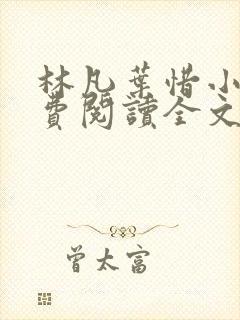 林凡葉惜小
費閱讀全文
曾太富